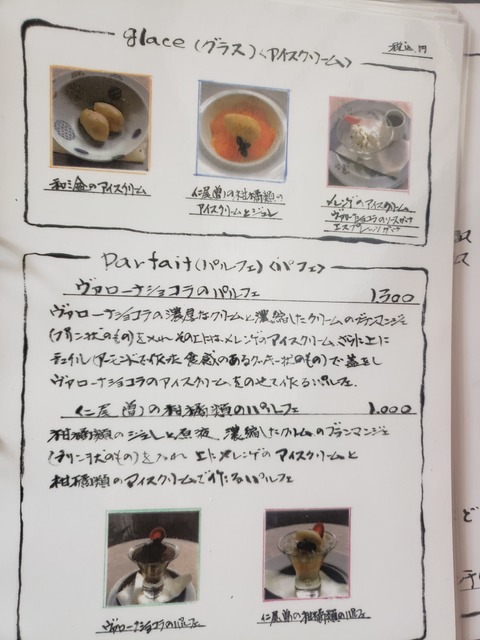 glace (グラス)〈アイスクリーム〉
税込.円
和三盆のアイスクリーム
仁尾 曽の柑橘類の
アイスクリームとジュレ
メレンゲのアイスクリーム
ヴァローナショコラのソースがけ
エスプレッソがけ
Parfait (パルフェ)〈パフェ〉
ヴァローナショコラのパルフェ 1300
ヴァローナショコラの濃厚なクリームと濃縮したクリームのブランマンジェ
(プリン状のもの)を入れ その上にはメレンゲのアイスクリーム、さらに上に
テュイル(アーモンドで作った食感のあるクッキー状のもの)で蓋をし
ヴァローナショコラのアイスクリームをのせて作るパルフェ.
仁尾 曽の柑橘類のパルフェ 1.000
柑橘類のジュレと原液 濃縮したクリームのブランマンジェ
(プリン状のもの)を入れ 上にメレンゲのアイスクリームと
柑橘類のアイスクリームで作るパルフェ
ヴァローナショコラのパルフェ
仁尾 曽の柑橘類のパルフェ